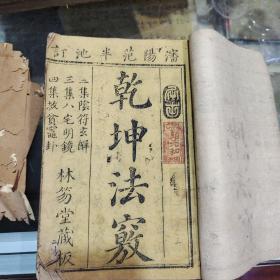 瀋陽范半池訂
乾坤法竅
二集陰符玄解
三集八宅明鏡
四集披貧竈卦
林笏堂藏板